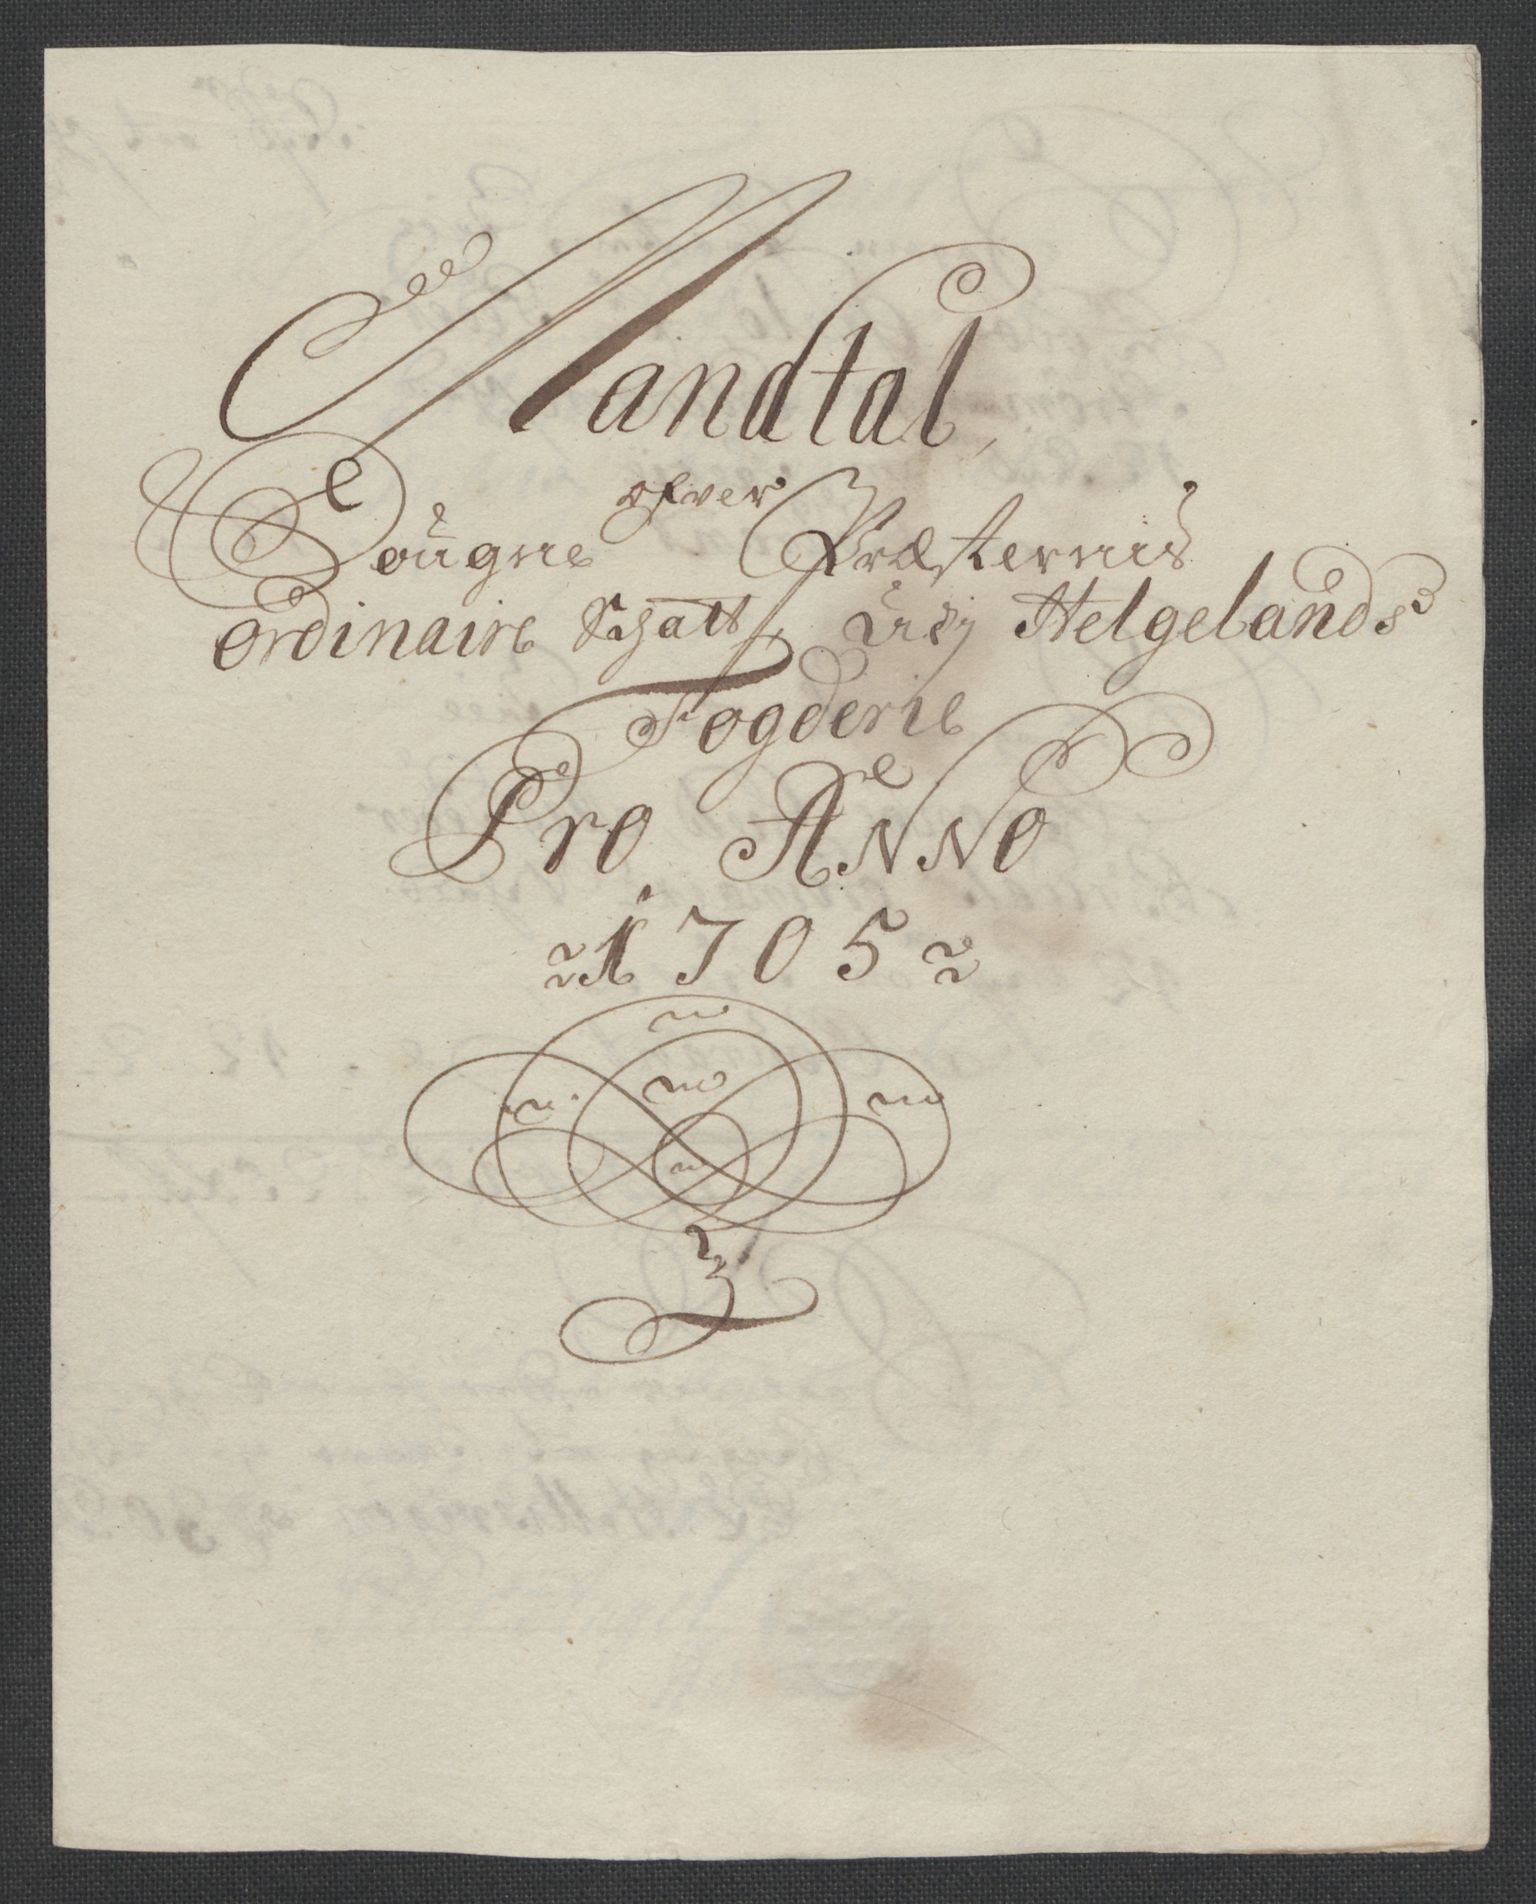 Mandtal
ofver
Sougne Præsternis
Ordinaire Schatt, udj Helgelands
Fogderie
Pro ANNO
1705